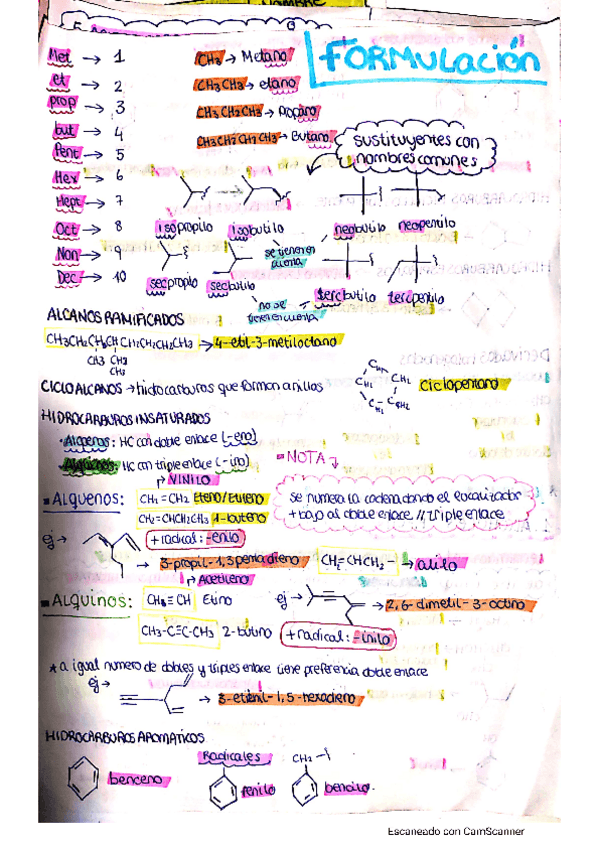 NOMBRE
FORMULACIÓN
Met → 1
et → 2
prop → 3
but → 4
Pent → 5
Hex → 6
Hept → 7
Oct → 8
Non → 9
Dec → 10
CH3 → Metano
CH3CH3 → etano
CH3CH2CH3 → Propano
CH3CH2CH2CH3 → Butano
sustituyentes con
nombres comunes
isopropilo isobutilo neobutilo neopentilo
se tienen en
cuenta
secpropilo secbutilo
no se
tienen cuenta
tercbutilo tercpentilo
ALCANOS RAMIFICADOS
CH3CH2CH2CHCH2CH2CH2CH3 → 4-etil-3-metiloctano
CH3 CH2
CH3
CICLOALCANOS → hidrocarburos que forman anillos
CH2
CH2 CH2
CH2
Ciclopentano
HIDROCARBUROS INSATURADOS
· Alquenos: HC con doble enlace (-eno)
· Alquinos: HC con triple enlace (-ino)
NOTA
se numera la cadena dando el localizador
+ bajo al doble enlace // triple enlace
VINILO
Alquenos: CH2=CH2 Eteno/Etileno
CH2=CHCH2CH3 1-buteno
+ radical: -enilo
ej → → 3-propil-1,3pentadieno
CH2=CHCH2- → alilo
Acetileno
Alquinos: CH≡CH Etino
ej → → 2,6-dimetil-3-octino
CH3-C≡C-CH3 2-butino
+ radical: -inilo
* a igual numero de dobles y triples enlace tiene preferencia doble enlace
ej → → 3-etinil-1,5-hexadieno
HIDROCARBUROS AROMATICOS
Radicales
CH2-
benceno
fenilo
bencilo.
Escaneado con CamScanner